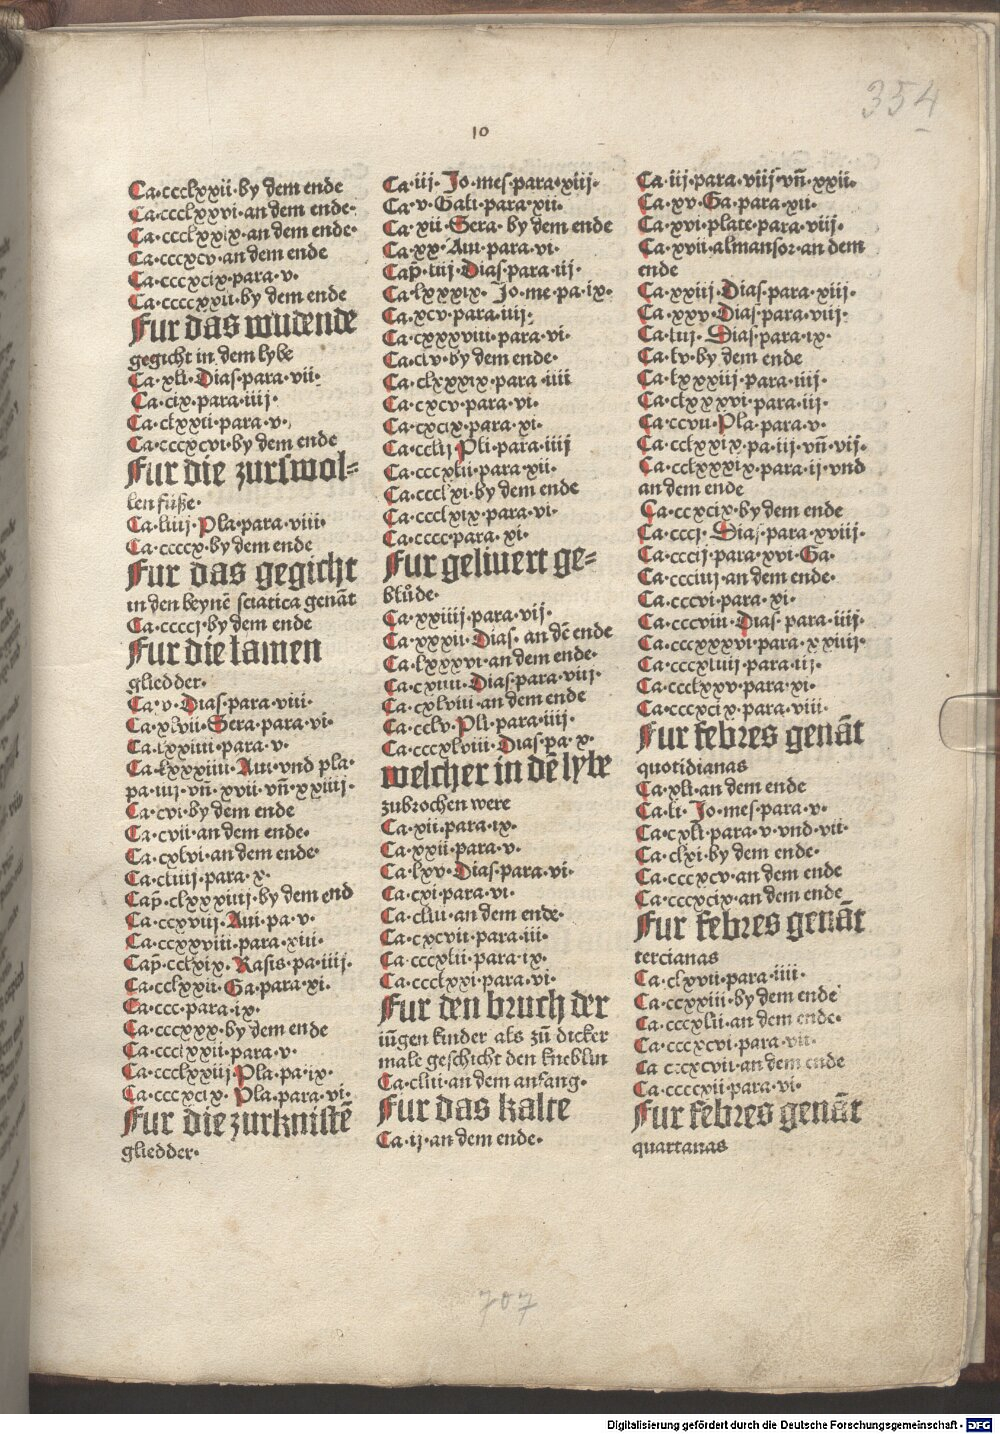 354
10
Ca·ccclxxii·by dem ende
Ca·ccclxxvi·an dem ende·
Ca·ccclxxix·an dem ende·
Ca·cccxcv·an dem ende
Ca·cccxcix·para·v·
Ca·ccccxxii·by dem ende
Fur das wutende
gegicht in dem lybe
Ca·xli·Dias·para·vii·
Ca·cix·para·iiij·
Ca·clxxii·para·v·
Ca·cccxcvi·by dem ende
Fur die zurswol⸗
len füße·
Ca·liiij·Pla·para·viii·
Ca·ccccx·by dem ende
Fur das gegicht
in den beynē sciatica genāt
Ca·ccccj·by dem ende
Fur die lamen
gliedder·
Ca·v·Dias·para·viii·
Ca·xlvii·Sera·para·vi·
Ca·lxxiiii·para·v·
Ca·lxxxiiii·Aui·vnd pla·
pa·iij·vn̄·xvii·vn̄·xxiiij·
Ca·cvi·by dem ende
Ca·cvii·an dem ende·
Ca·cxlvi·an dem ende·
Ca·cliiij·para·x·
Cap̄·clxxxiiij·by dem end
Ca·ccxviij·Aui·pa·v·
Ca·ccxxviii·para·xiii·
Cap̄·cclxix·Rasis·pa·iiij·
Ca·cclxxii·Ga·para·xi·
Ca·ccc·para·ix·
Ca·cccxxx·by dem ende
Ca·ccclxxii·para·v·
Ca·ccclxxiij·Pla·pa·ix·
Ca·cccxcix·Pla·para·vi·
Fur die zurknistē
gliedder·
Ca·iij·Jo·mes·para·xiij·
Ca·v·Gali·para·xii·
Ca·xii·Sera·by dem ende
Ca·xx·Aui·para·vi·
Cap̄·liij·Dias·para·iij·
Ca·lxxxix·Jo·me·pa·ix·
Ca·xcv·para·iiij·
Ca·cxxxviii·para·vi·
Ca·clv·by dem ende·
Ca·clxxxix·para·iiii
Ca·cxcv·para·vi·
Ca·cxcix·para·xi·
Ca·cclij·Pli·para·iiij
Ca·cccxlii·para·xii·
Ca·ccclxi·by dem ende
Ca·ccclxix·para·vi·
Ca·cccc·para·xi·
Fur geliuert ge⸗
blůde·
Ca·xxiiij·para·vij·
Ca·xxxii·Dias·an dē ende
Ca·lxxxvi·an dem ende·
Ca·cxiiii·Dias·para·viij·
Ca·cxlviii·an dem ende
Ca·cclv·Pli·para·iiij·
Ca·cccxlviii·Dias·pa·x·
welcher in dē lybe
zubrochen were
Ca·xii·para·ix·
Ca·xxii·para·v·
Ca·lxv·Dias·para·vi·
Ca·cxi·para·vi·
Ca·cliii·an dem ende·
Ca·cxcvii·para·iii·
Ca·cccxlii·para·ix·
Ca·ccclxxi·para·vi·
Fur den bruch der
iūgen kinder als zū dicker
male geschicht den kneblin
Ca·cliii·an dem anfang·
Fur das kalte
Ca·ij·an dem ende·
Ca·iij·para·viij·vn̄·xxii·
Ca·xv·Ga·para·xii·
Ca·xvi·plate·para·viij·
Ca·xvii·almansor·an dem
ende
Ca·xxiij·Dias·para·xiij·
Ca·xxv·Dias·para·viij·
Ca·liij·Dias·para·ix·
Ca·lv·by dem ende
Ca·lxxxiij·para·iiij·
Ca·clxxxvi·para·iij·
Ca·ccvii·Pla·para·v·
Ca·cclxxix·pa·iij·vn̄·vij·
Ca·cclxxxix·para·ij·vnd
an dem ende
Ca·ccxcix·by dem ende
Ca·cccj·Dias·para·xviij·
Ca·cccij·para·xvi·Ga·
Ca·ccciiij·an dem ende·
Ca·cccvi·para·xi·
Ca·cccviii·Dias·para·iiij·
Ca·cccxxxvi·para·xxiiij·
Ca·cccxliiij·para·iij·
Ca·ccclxxv·para·xi·
Ca·cccxcix·para·viii·
Fur febres genāt
quotidianas
Ca·xli·an dem ende
Ca·li·Jo·mes·para·v·
Ca·cxli·para·v·vnd·vii·
Ca·clxi·by dem ende·
Ca·cccxcv·an dem ende
Ca·cccxcix·an dem ende
Fur febres genāt
tercianas
Ca·clxvii·para·iiii·
Ca·ccxxiii·by dem ende
Ca·cccxlii·an dem ende·
Ca·cccxcvi·para·vii·
Ca cccxcvii·an dem ende
Ca·ccccxii·para·vi·
Fur febres genāt
quartanas
707
Digitalisierung gefördert durch die Deutsche Forschungsgemeinschaft - DFG